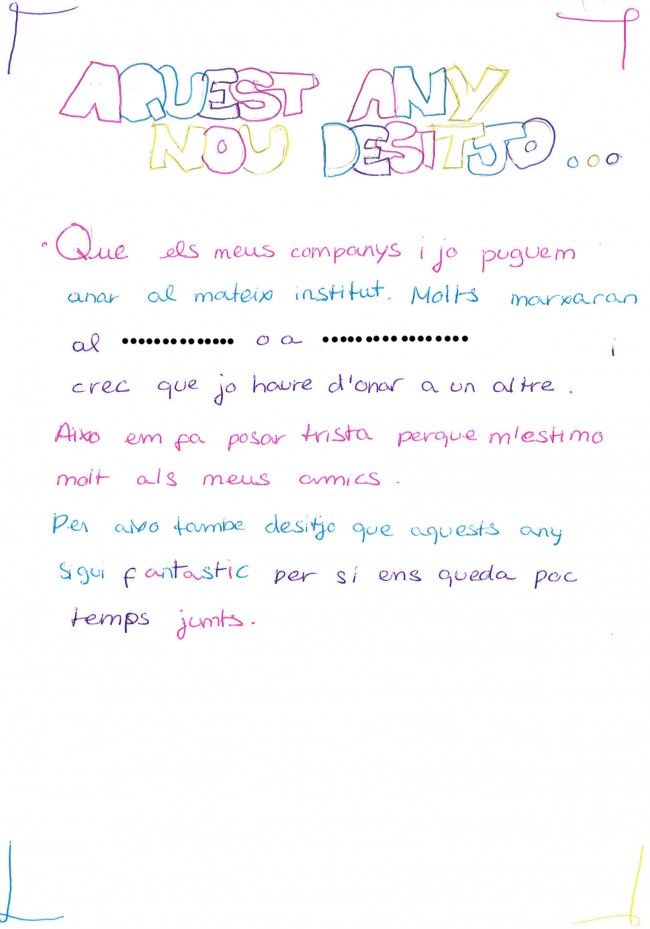 AQUEST ANY
NOU DESITJO...
· Que els meus companys i jo puguem
anar al mateix institut. Molts marxaran
al .............. o a .................. i
crec que jo haure d'anar a un altre.
Aixo em fa posar trista perque m'estimo
molt als meus amics.
Per aixo tambe desitjo que aquests any
sigui fantastic per si ens queda poc
temps jumts.